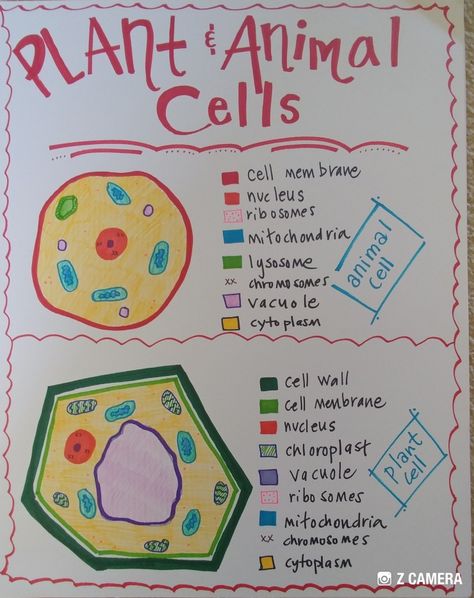 PLAnt & Animal
Cells
cell membrane
nucleus
ribosomes
mitochondria
lysosome
xx chromosomes
vacuole
cytoplasm
animal
cell
cell wall
cell membrane
nucleus
chloroplast
vacuole
ribosomes
mitochondria
xx chromosomes
cytoplasm
plant
cell
Z CAMERA